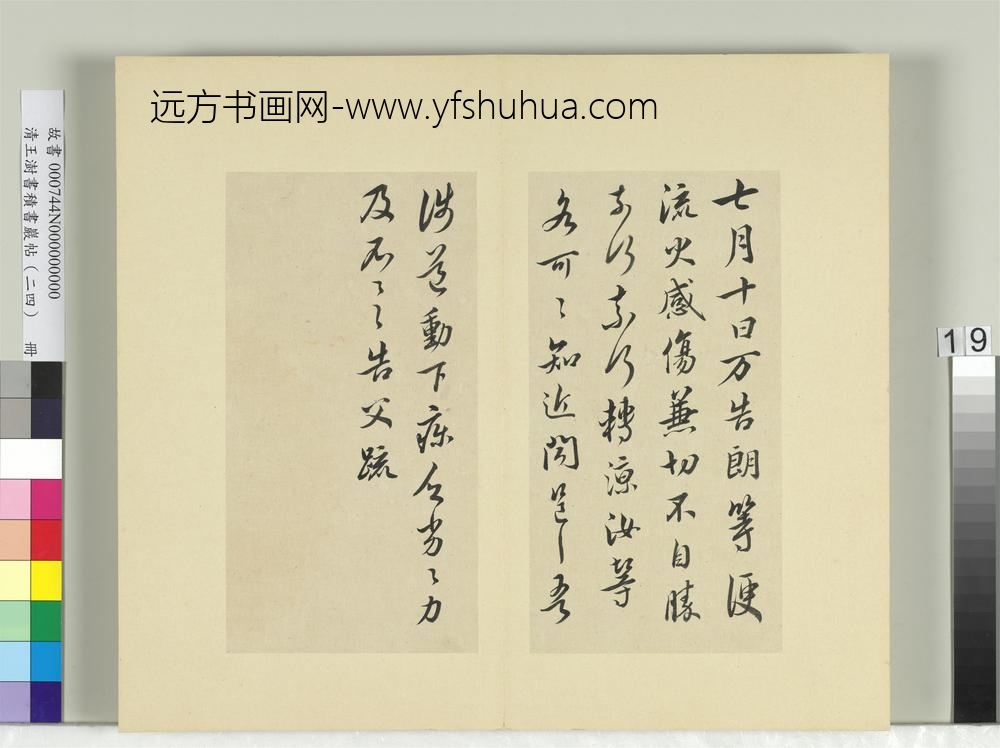 远方书画网-www.yfshuhua.com
故書 000744N000000000
清王澍書積書巖帖（二四） 冊
19
七月十日万告朗等便
流火感傷兼切不自勝
奈何奈何轉涼汝等
各可〻知近問邑邑吾
涉道動下痢乏劣〻力
及不〻〻告父疏